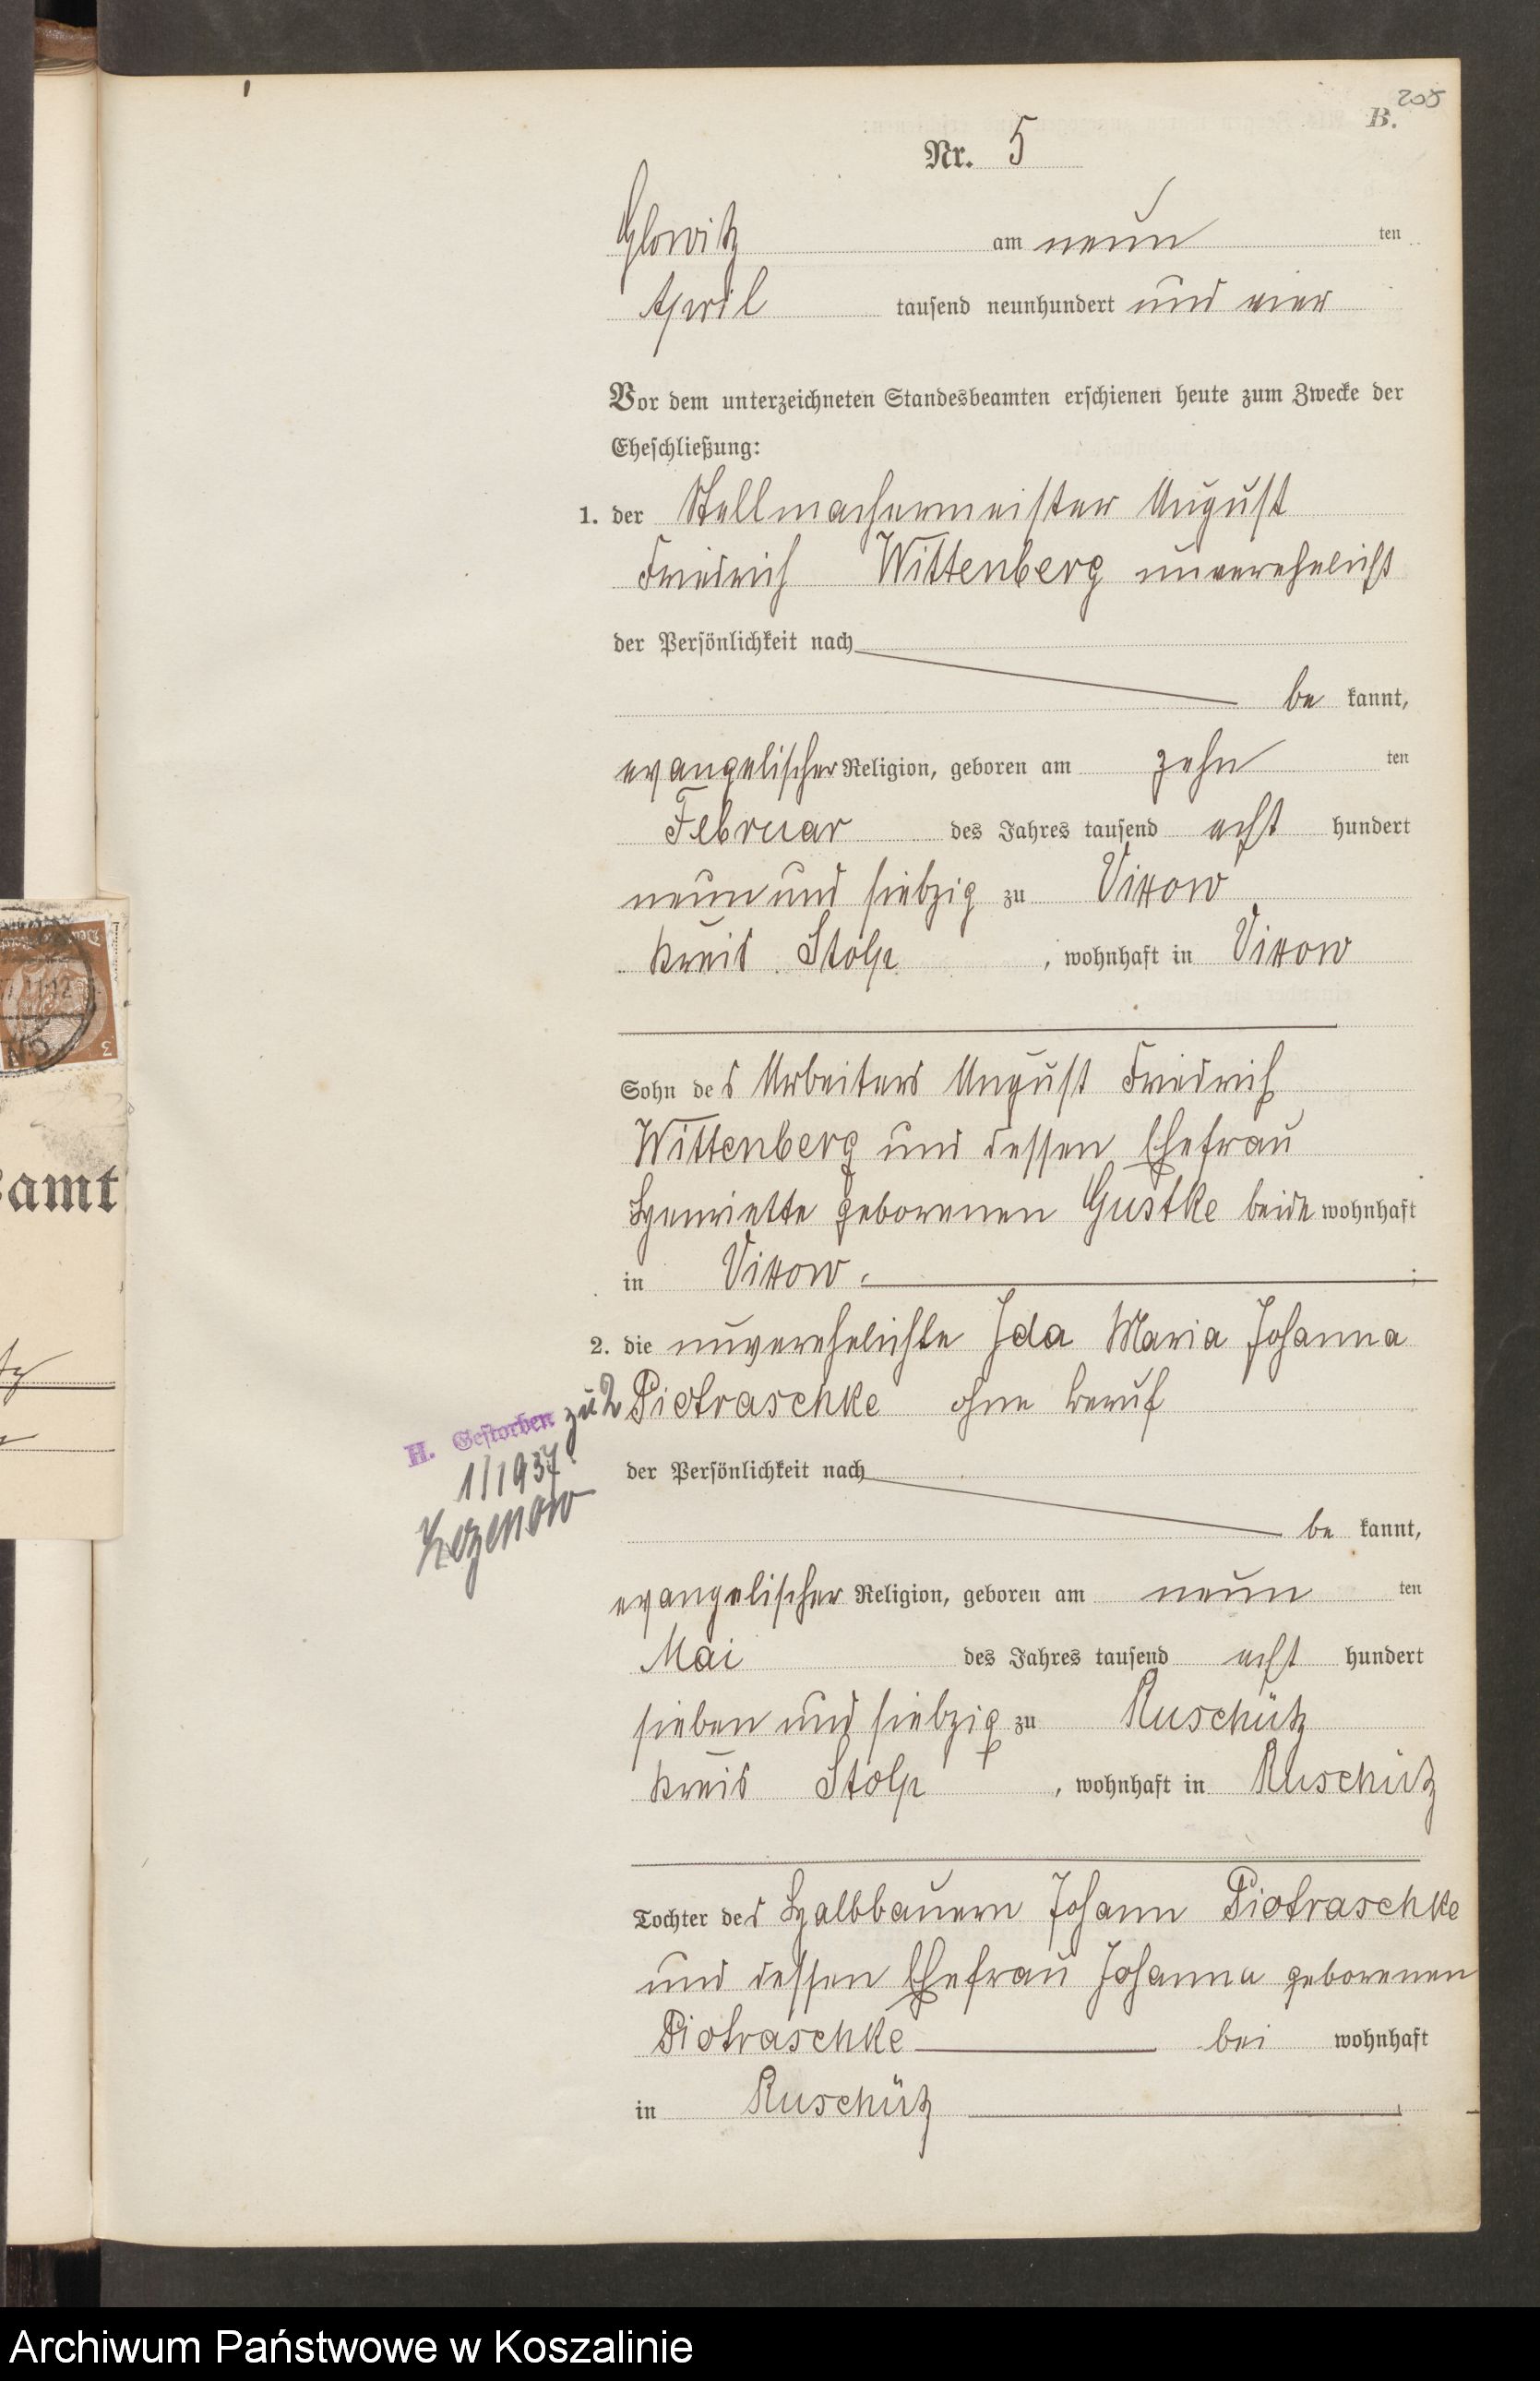 205
B.
Nr. 5
Glowitz am neun ten
April tausend neunhundert und vier
Vor dem unterzeichneten Standesbeamten erschienen heute zum Zwecke der
Eheschließung:
1. der Stellmachermeister August
Friedrich Wittenberg unverehelicht
der Persönlichkeit nach
be kannt,
evangelischer Religion, geboren am zehn ten
Februar des Jahres tausend acht hundert
neun und siebzig zu Vixow
Kreis Stolp, wohnhaft in Vixow
Sohn des Arbeiters August Friedrich
Wittenberg und dessen Ehefrau
Henriette geborenen Gustke beide wohnhaft
in Vixow.
2. die unverehelichte Ida Maria Johanna
Piotraschke ohne Beruf
der Persönlichkeit nach
be kannt,
evangelischer Religion, geboren am neun ten
Mai des Jahres tausend acht hundert
sieben und siebzig zu Ruschütz
Kreis Stolp, wohnhaft in Ruschütz
Tochter des Halbbauern Johann Piotraschke
und dessen Ehefrau Johanna geborenen
Piotraschke bei wohnhaft
in Ruschütz
H. Gestorben zu 2
1/1937
Zezenow
amt
3
Archiwum Państwowe w Koszalinie